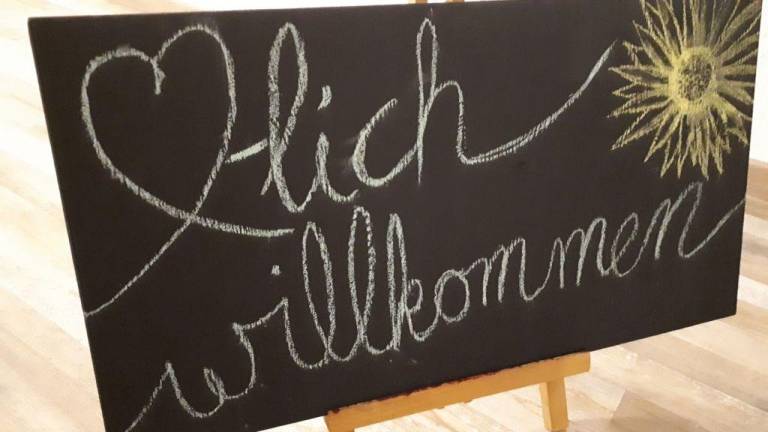 ♡lich
willkommen